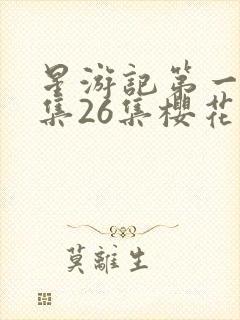 星游記第一
集26集櫻花
莫離生